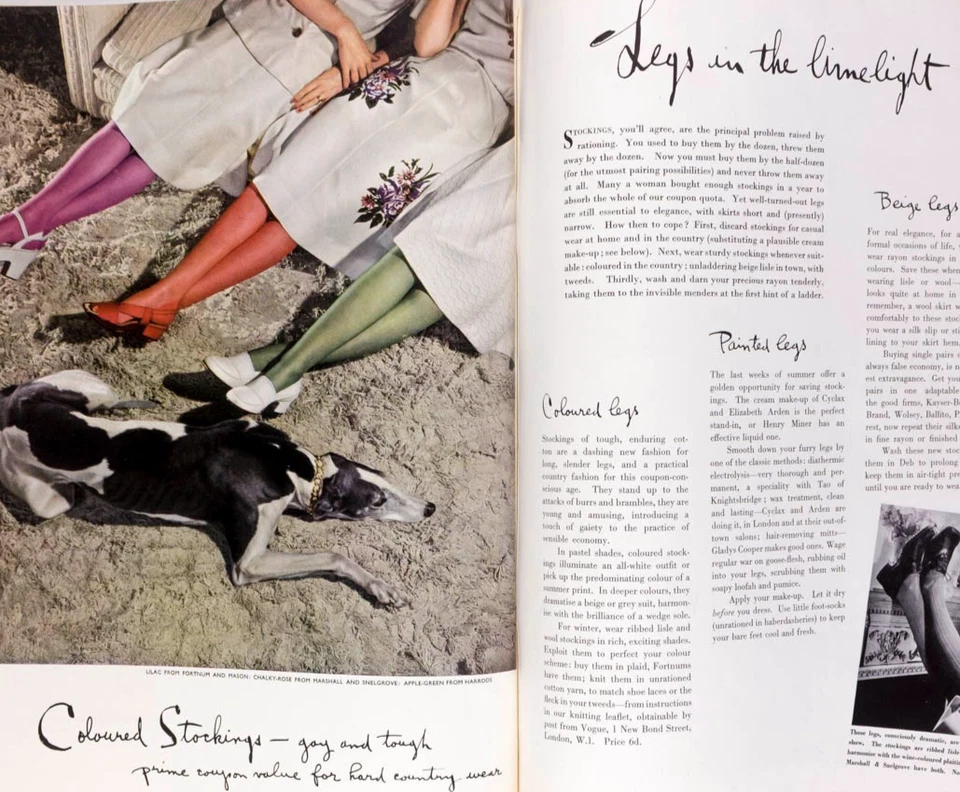 LILAC FROM FORTNUM AND MASON: CHALKY-ROSE FROM MARSHALL AND SNELGROVE: APPLE-GREEN FROM HARRODS
Coloured Stockings — gay and tough
prime coupon value for hard country wear
Legs in the limelight
STOCKINGS, you'll agree, are the principal problem raised by
rationing. You used to buy them by the dozen, threw them
away by the dozen. Now you must buy them by the half-dozen
(for the utmost pairing possibilities) and never throw them away
at all. Many a woman bought enough stockings in a year to
absorb the whole of our coupon quota. Yet well-turned-out legs
are still essential to elegance, with skirts short and (presently)
narrow. How then to cope? First, discard stockings for casual
wear at home and in the country (substituting a plausible cream
make-up; see below). Next, wear sturdy stockings whenever suit-
able: coloured in the country; unladdering beige lisle in town, with
tweeds. Thirdly, wash and darn your precious rayon tenderly,
taking them to the invisible menders at the first hint of a ladder.
Coloured legs
Stockings of tough, enduring cot-
ton are a dashing new fashion for
long, slender legs, and a practical
country fashion for this coupon-con-
scious age. They stand up to the
attacks of burrs and brambles, they are
young and amusing, introducing a
touch of gaiety to the practice of
sensible economy.
In pastel shades, coloured stock-
ings illuminate an all-white outfit or
pick up the predominating colour of a
summer print. In deeper colours, they
dramatise a beige or grey suit, harmon-
ise with the brilliance of a wedge sole.
For winter, wear ribbed lisle and
wool stockings in rich, exciting shades.
Exploit them to perfect your colour
scheme: buy them in plaid, Fortnums
have them; knit them in unrationed
cotton yarn, to match shoe laces or the
fleck in your tweeds—from instructions
in our knitting leaflet, obtainable by
post from Vogue, 1 New Bond Street,
London, W.1. Price 6d.
Painted legs
The last weeks of summer offer a
golden opportunity for saving stock-
ings. The cream make-up of Cyclax
and Elizabeth Arden is the perfect
stand-in, or Henry Miner has an
effective liquid one.
Smooth down your furry legs by
one of the classic methods: diathermic
electrolysis—very thorough and per-
manent, a speciality with Tao of
Knightsbridge; wax treatment, clean
and lasting—Cyclax and Arden are
doing it, in London and at their out-of-
town salons; hair-removing mitts—
Gladys Cooper makes good ones. Wage
regular war on goose-flesh, rubbing oil
into your legs, scrubbing them with
soapy loofah and pumice.
Apply your make-up. Let it dry
before you dress. Use little foot-socks
(unrationed in haberdasheries) to keep
your bare feet cool and fresh.
Beige legs
For real elegance, for a
formal occasions of life,
wear rayon stockings in
colours. Save these when
wearing lisle or wool—
looks quite at home in
remember, a wool skirt w
comfortably to these stoc
you wear a silk slip or sti
lining to your skirt hem.
Buying single pairs
always false economy, is n
est extravagance. Get you
pairs in one adaptable
the good firms, Kayser-B
Brand, Wolsey, Ballito, P
rest, now repeat their silk
in fine rayon or finished
Wash these new stoc
them in Deb to prolong
keep them in air-tight pre
until you are ready to wea
These legs, consciously dramatic, are
show. The stockings are ribbed lisle
harmonise with the wine-coloured plaiti
Marshall & Snelgrove have both.